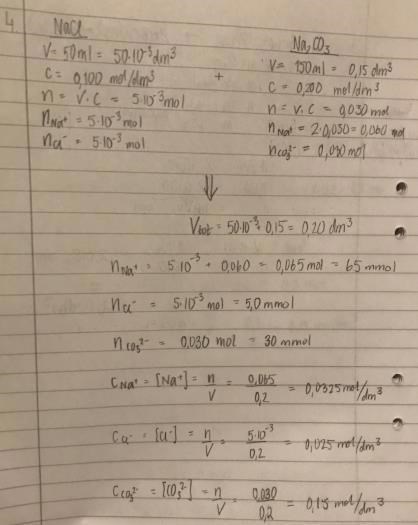 4.
NaCl
V = 50ml = 50·10⁻³dm³
C = 0,100 mol/dm³
n = V·C = 5·10⁻³mol
nNa⁺ = 5·10⁻³mol
nCl⁻ = 5·10⁻³mol
+
Na₂CO₃
V = 150ml = 0,15 dm³
C = 0,200 mol/dm³
n = V·C = 0,030mol
nNa⁺ = 2·0,030 = 0,060 mol
nCO₃²⁻ = 0,030 mol
⇓
Vtot = 50·10⁻³ + 0,15 = 0,20 dm³
nNa⁺ = 5·10⁻³ + 0,060 = 0,065 mol = 65 mmol
nCl⁻ = 5·10⁻³ mol = 5,0 mmol
nCO₃²⁻ = 0,030 mol = 30 mmol
CNa⁺ = [Na⁺] = n/V = 0,065/0,2 = 0,0325 mol/dm³
CCl⁻ = [Cl⁻] = n/V = 5·10⁻³/0,2 = 0,025 mol/dm³
CCO₃²⁻ = [CO₃²⁻] = n/V = 0,030/0,2 = 0,15 mol/dm³